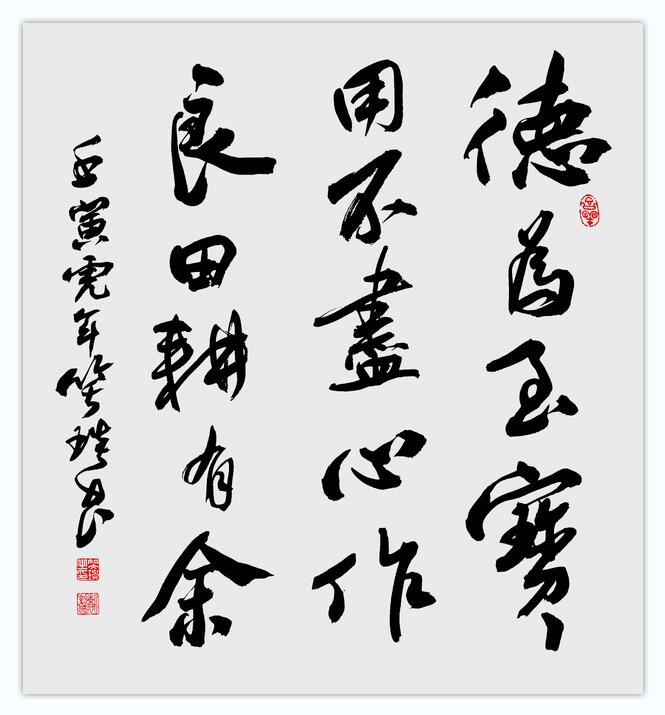 德為至寶
用不盡心作
良田耕有余
壬寅虎年书